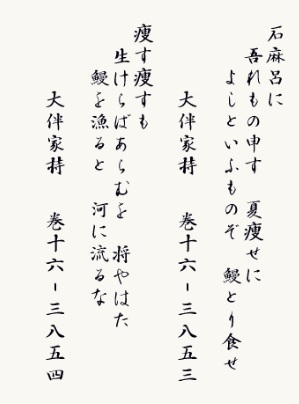 石麻呂に
吾れもの申す　夏痩せに
よしといふものぞ　鰻とり食せ
大伴家持　巻十六－三八五三
痩す痩すも
生けらばあらむを　将やはた
鰻を漁ると　河に流るな
大伴家持　巻十六－三八五四